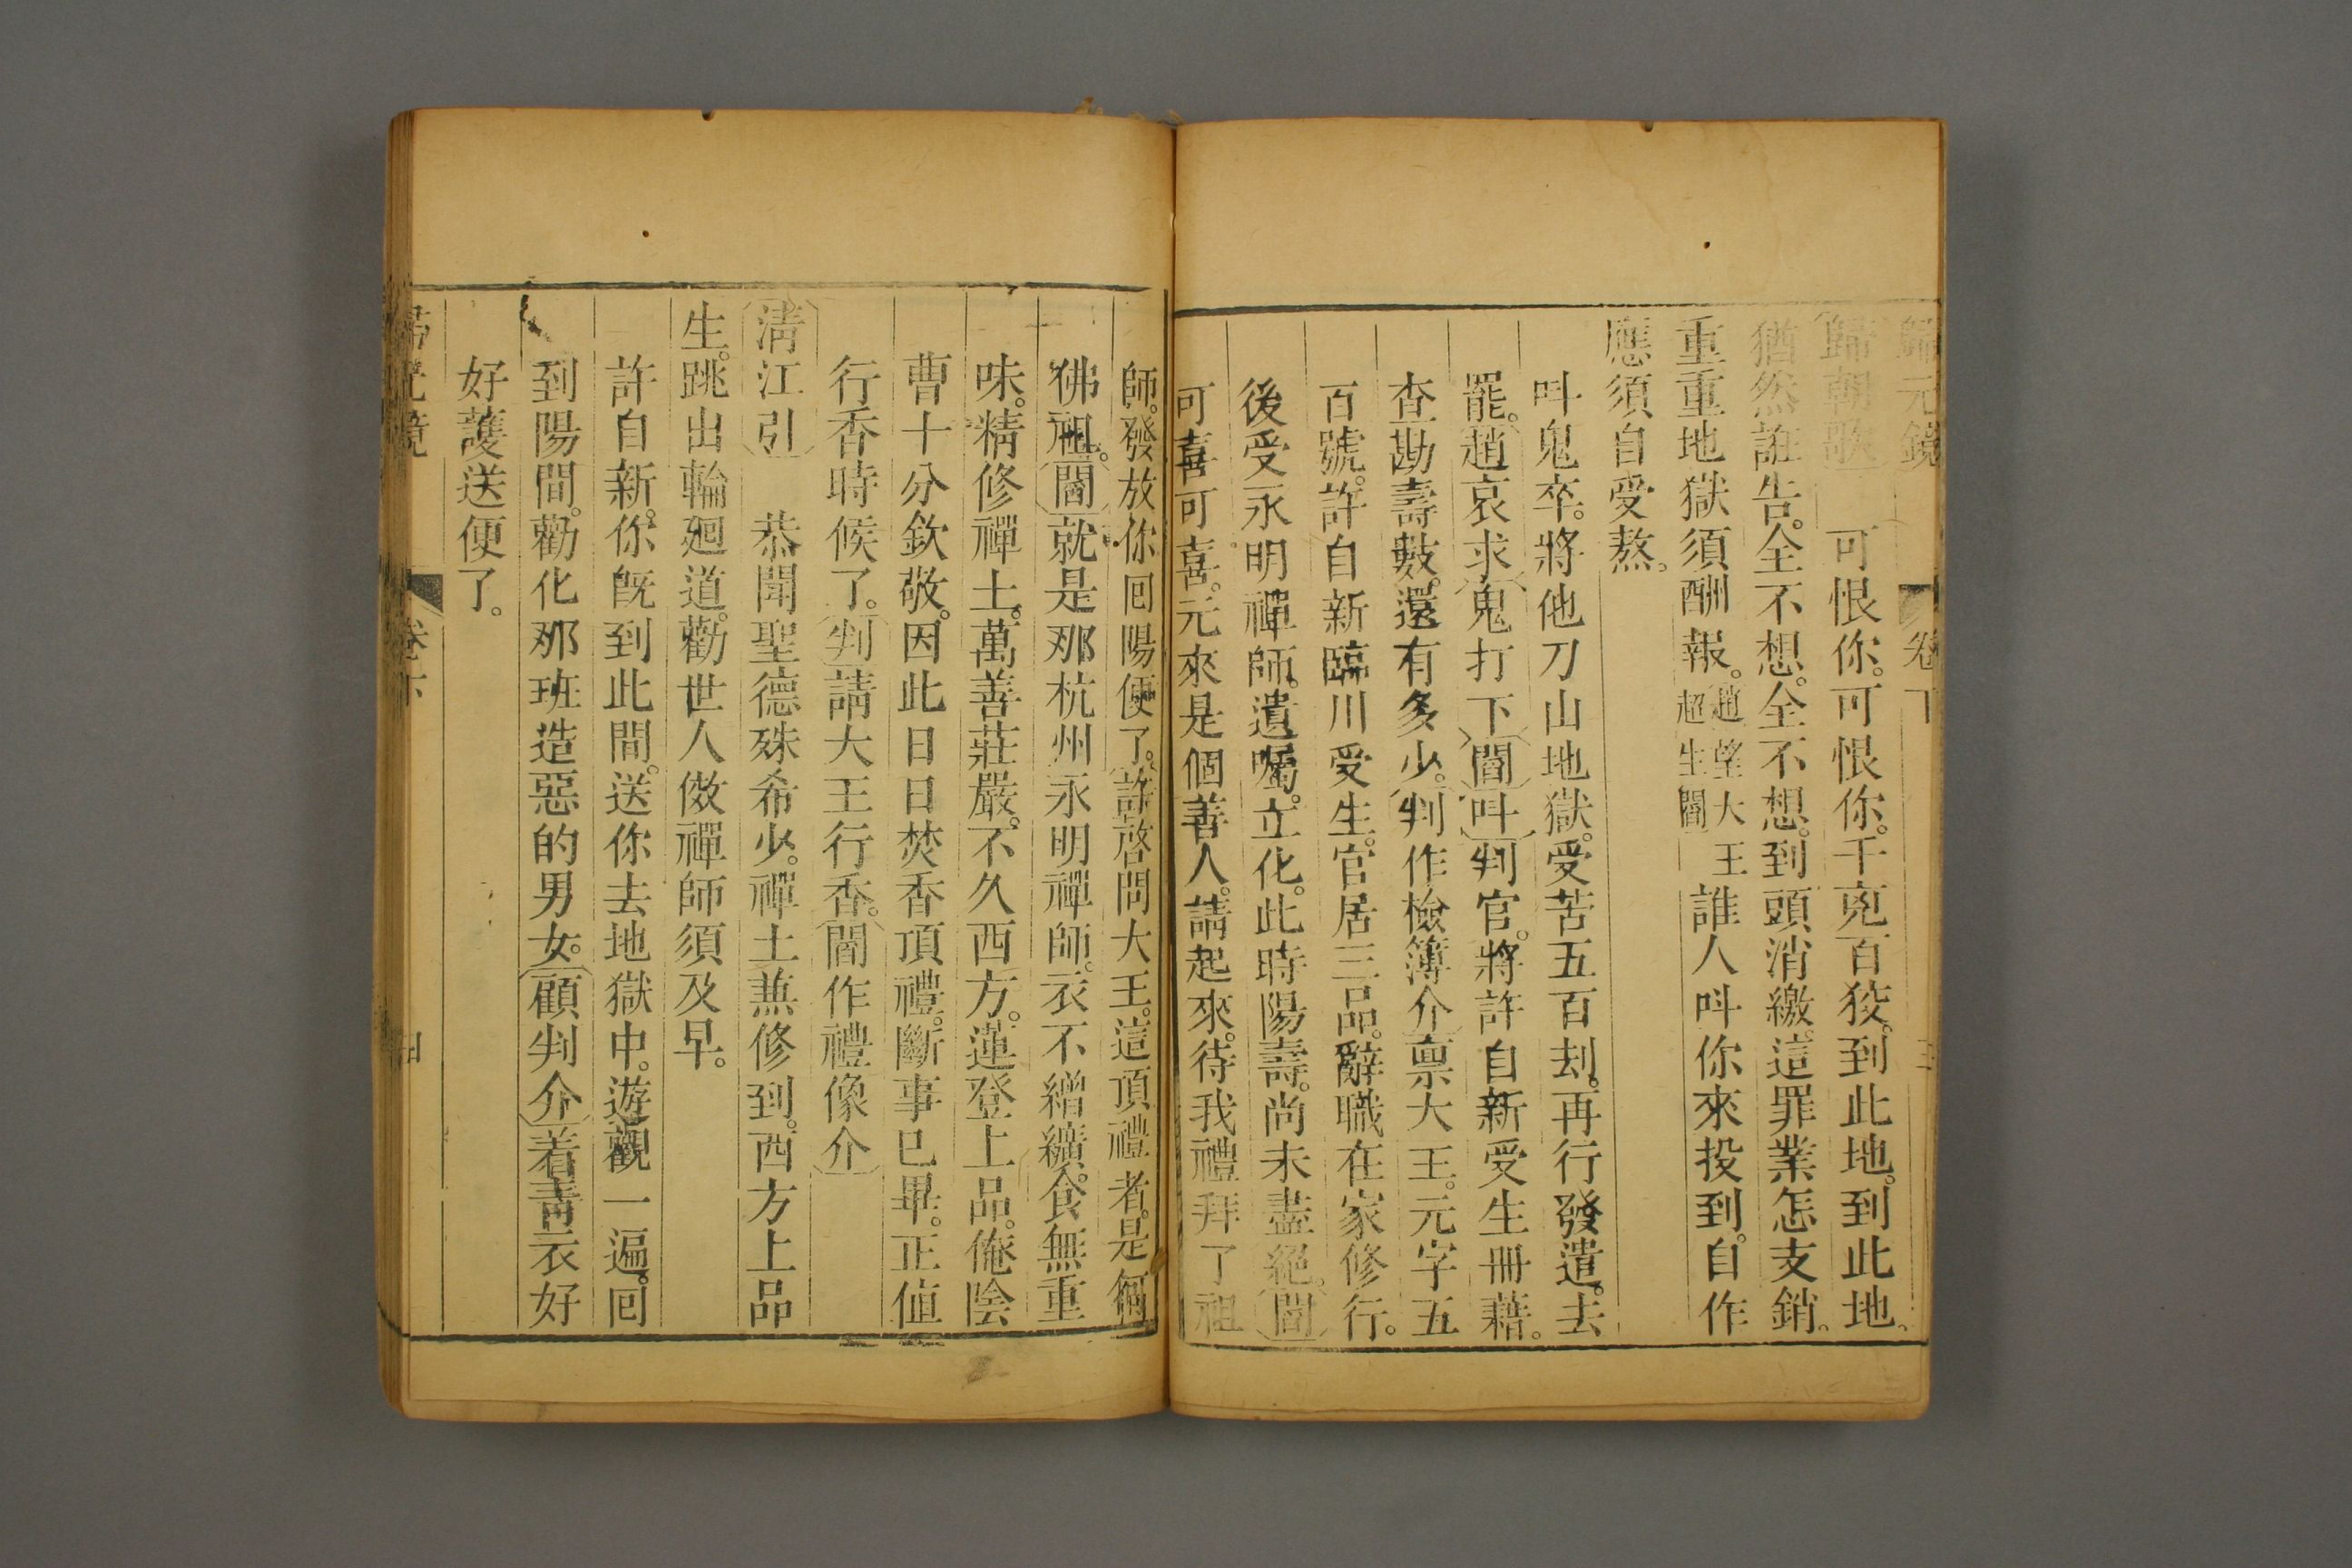 歸元鏡 卷下 三
歸朝歌 可恨你。可恨你。千兇百狡。到此地。到此地。
猶然誰告。全不想。全不想。到頭消繳。這罪業怎支銷。
重重地獄須酬報。趙望大王超生閻 誰人呌你來投到。自作
應須自受熬。
呌鬼卒。將他刀山地獄。受苦五百刦。再行發遣。去
罷。趙哀求鬼打下閻呌判官。將許自新受生冊藉。
查勘壽數。還有多少。判作檢簿介禀大王。元字五
百號。許自新臨川受生。官居三品。辭職在家修行。
後受永明禪師。遺囑。立化。此時陽壽。尚未盡絕。閻
可喜可喜。元來是個善人。請起來。待我禮拜了祖
師。發放你囘陽便了。許啓問大王。這頂禮者。是何
佛祖。閻就是那杭州永明禪師。衣不繒纊。食無重
味。精修禪土。萬善莊嚴。不久西方。蓮登上品。俺陰
曹十分欽敬。因此日日焚香頂禮。斷事已畢。正值
行香時候了。判請大王行香。閻作禮像介
淸江引 恭聞聖德殊希少。禪土兼修到。西方上品
生。跳出輪廻道。勸世人倣禪師須及早。
許自新。你旣到此間。送你去地獄中。遊觀一遍。囘
到陽間。勸化那班造惡的男女。顧判介着靑衣好
好護送便了。
卷下